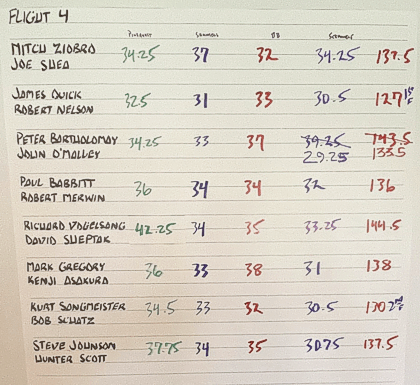 FLIGHT 4
BB
MITCH ZIOBRO 34.25 37 32 34.25 137.5
JOE SHEA
JAMES QUICK 32.5 31 33 30.5 127 1st
ROBERT NELSON
PETER BARTHOLOMAY 34.25 33 37 39.25 143.5
JOHN O'MALLEY 29.25 133.5
PAUL BABBITT 36 34 34 32 136
ROBERT MERWIN
RICHARD VOGELSONG 42.25 34 35 33.25 144.5
DAVID SHEPTAK
MARK GREGORY 36 33 38 31 138
KENJI ASAKURA
KURT SONGMEISTER 34.5 33 32 30.5 130 2nd
BOB SCHATZ
STEVE JOHNSON 37.75 34 35 30.75 137.5
HUNTER SCOTT